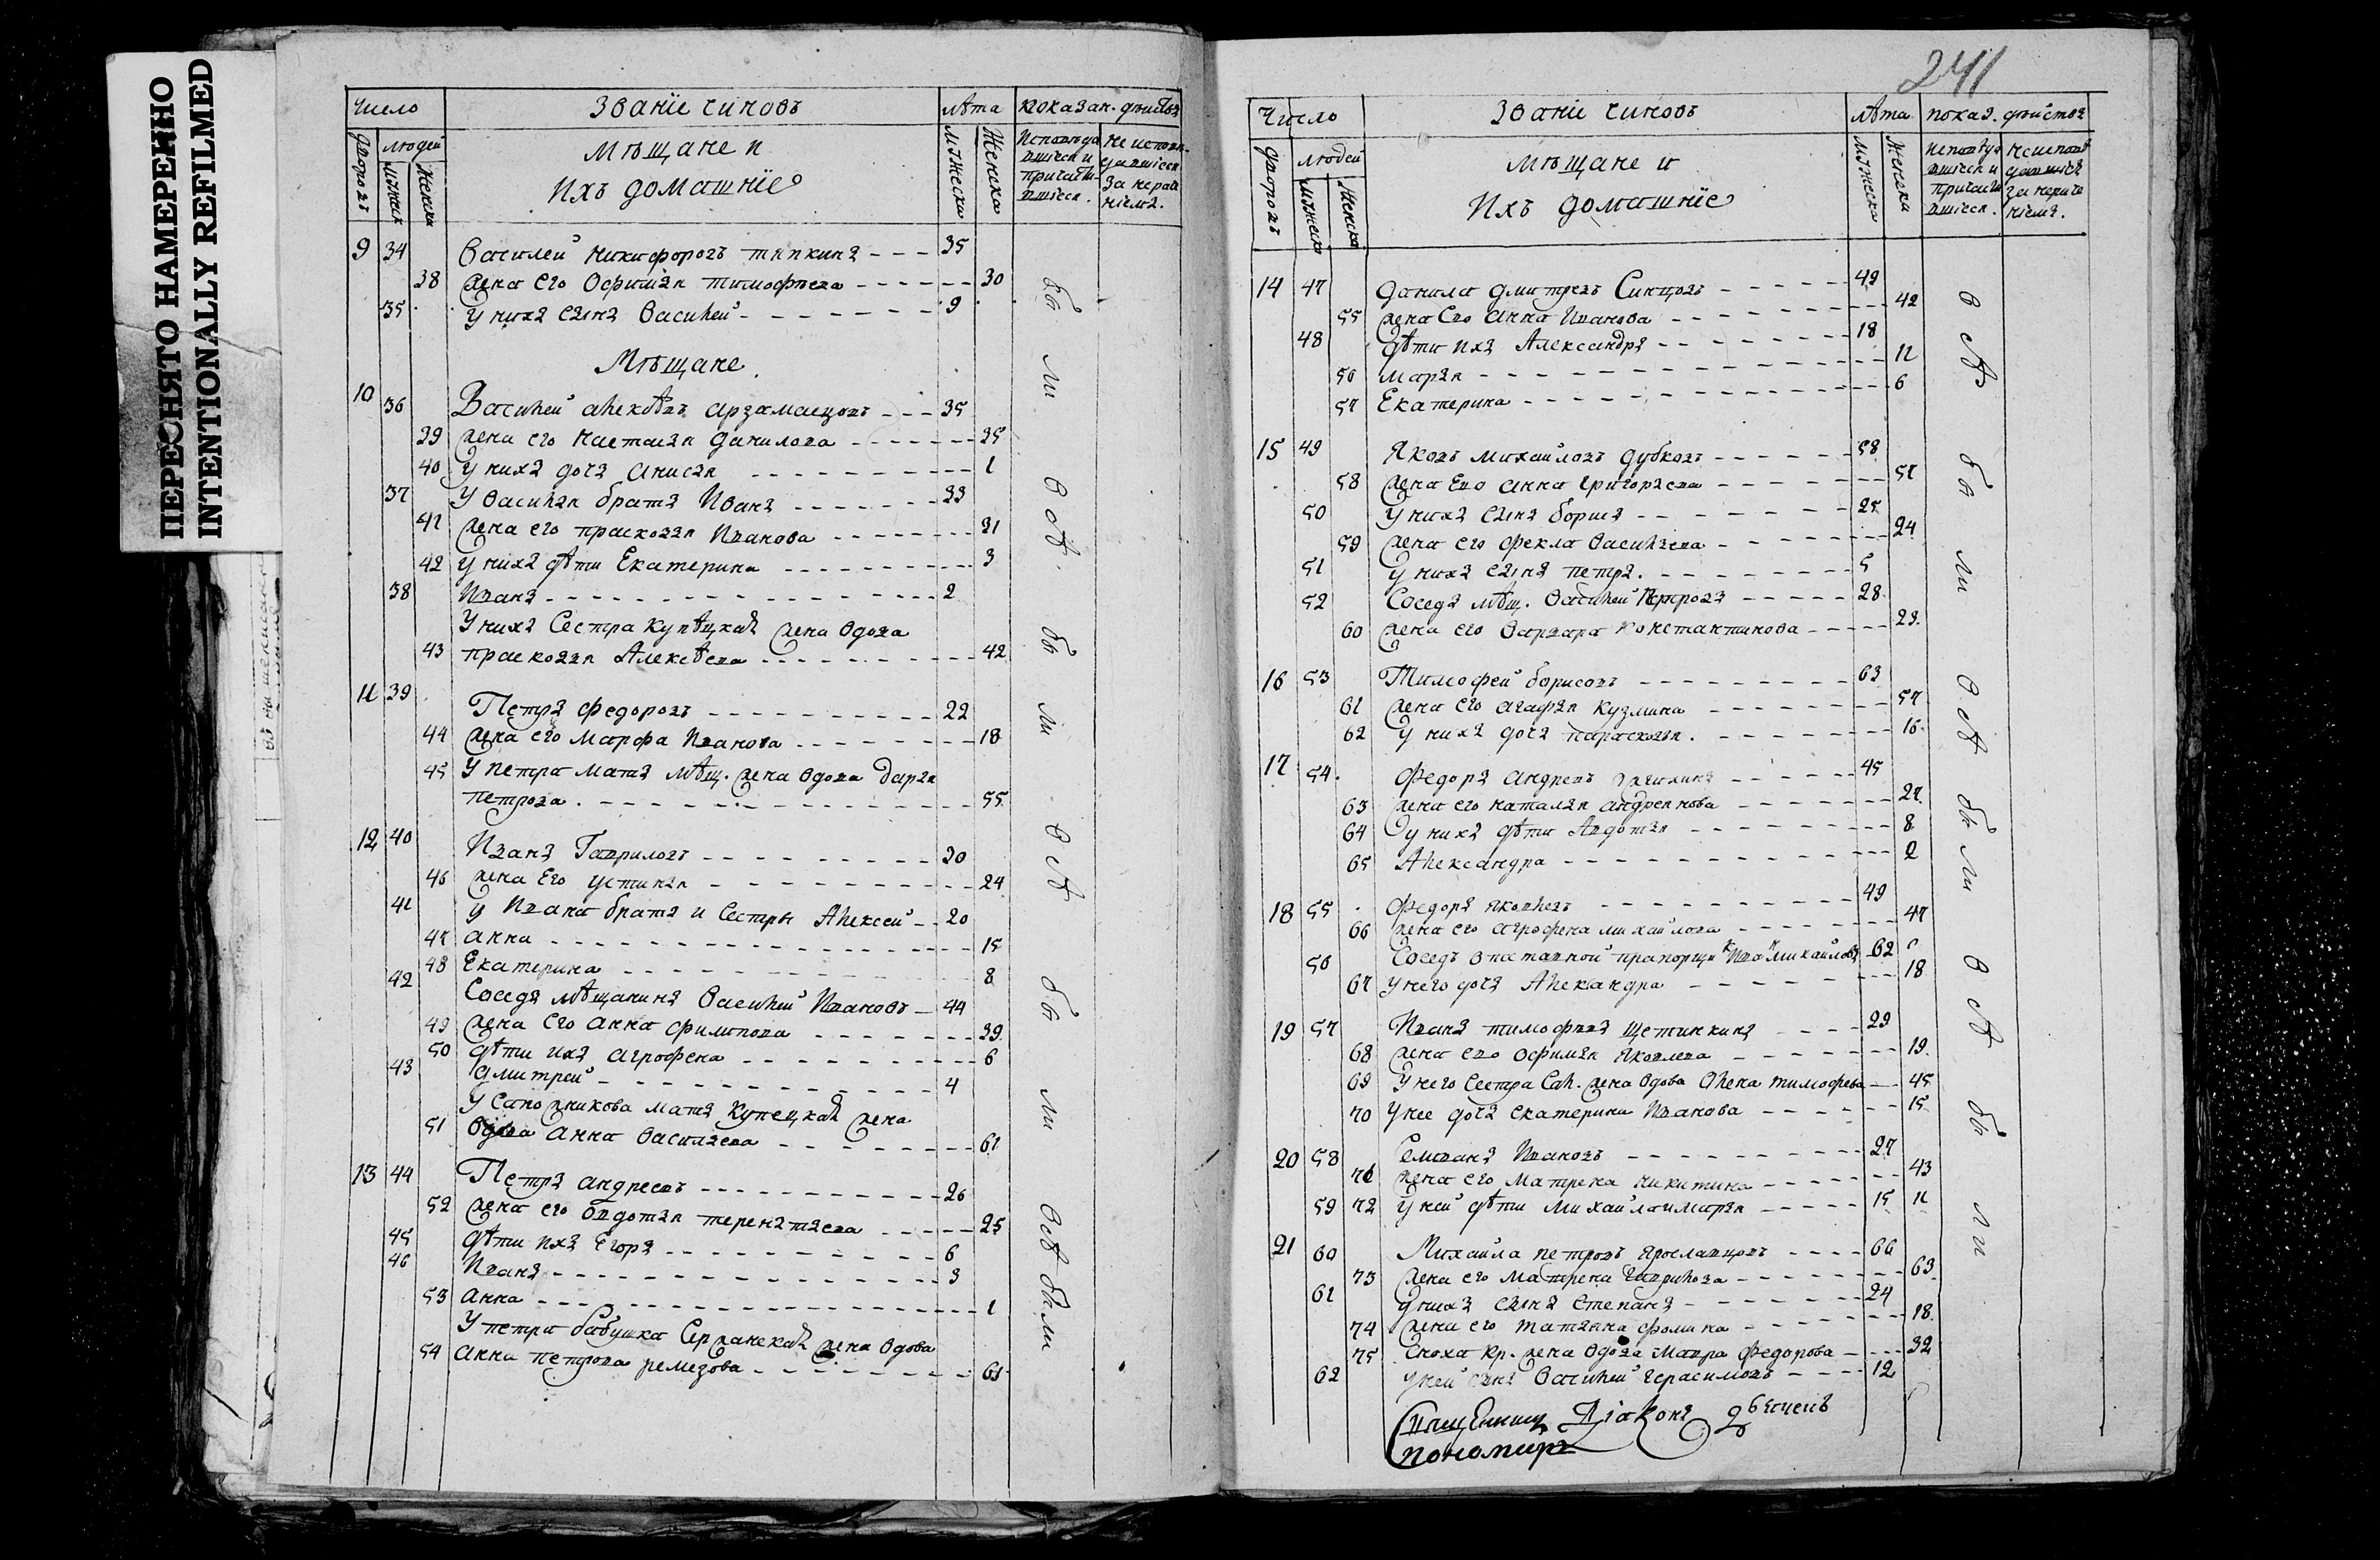 ПЕРЕСНЯТО НАМЕРЕННО
INTENTIONALLY REFILMED
Число Званїе чиновъ лѣта показан. дѣйств
дворовъ людей Мѣщане и мужеска Женска Исповѣда не испов.
мужеск Женска Ихъ домашнїе вшїеся и давшїеся
причасти- за нерач
вшїеся. нїемъ.
9 34 Василей никифоровъ тяпкинъ 35
38 жена его Офимья тимофѣева 30
35 у нихъ сынъ Василей 9
Мѣщане
10 36 Василей алексѣвъ арзамасцовъ 35
39 жена его настасья данилова 35
40 у нихъ дочь анисья 1
37 У василья братъ Иванъ 33
41 жена его прасковья Иванова 31
42 у нихъ дѣти Екатерина 3
38 Иванъ 2
У нихъ Сестра купѣцкая жена вдова
43 прасковья Алексѣева 42
11 39 Петръ федоровъ 22
44 жена его марфа Иванова 18
45 У петра мать мѣщ. жена вдова дарья
петрова. 55
12 40 Иванъ Гавриловъ 30
46 жена Его устинья 24
41 у Ивана братъ и Сестры Алексей 20
47 анна 15
48 Екатерина 8
42 Соседъ мѣщанинъ Василей Ивановъ 44
49 жена его анна филипова 39
50 дѣти ихъ агрофена 6
43 дмитрей 4
У Сапожникова мать Купецкая жена
51 вдова анна васильева 61
13 44 Петръ андреевъ 26
52 жена его овдотья терентьева 25
45 дѣти ихъ Егоръ 6
46 Иванъ 3
53 анна 1
У петра бабушка Сержанская жена вдова
54 анна петрова ремезова 61
бы ли всѣ бы ли всѣ бы ли всѣ были
241
Число Званїе чиновъ лѣта показ. дѣйство
дворовъ людей мѣщане и мужеска Женска исповѣда неисповѣ
мужеска Женска Ихъ домашнїе вшїеся и давшїеся
причасти за нераче
вшїеся. нїемъ.
14 47 данила дмитревъ Синцовъ 49
55 жена Ево анна Иванова 42
48 дѣти ихъ Александръ 18
56 марья 11
57 Екатерина 6
15 49 Яковъ михайловъ дубковъ 58
58 жена Ево анна григорьева 57
50 у нихъ сынъ борисъ 25
59 жена его фекла васильева 24
51 у нихъ сынъ петръ. 5
52 Соседъ мѣщ. Василей Петровъ 28
60 жена его варвара константинова 23
16 53 Тимофей борисовъ 63
61 жена его агафья кузмина 57
62 у нихъ дочь парасковья. 16
17 54 Федоръ андревъ 45
63 жена его наталья андреянова 27
64 у нихъ дѣти Авдотья 8
65 Александра 2
18 55 Федоръ яковлевъ 49
66 жена его агрофена михайлова 47
56 Соседъ отставной прапорщикъ Иванъ михайловъ 62
67 у него дочь Алекандра 18
19 57 Иванъ тимофѣвъ щетинкинъ 29
68 жена ево офимья яковлева 19
69 У него Сестра Сал. жена вдова Олена тимофева 45
70 У нее дочь екатерина Иванова 15
20 58 Селиванъ Ивановъ 27
71 жена его матрена никитина 43
59 72 у ней дѣти михайла и марья 15 11
21 60 Михайла петровъ ярославцовъ 66
73 жена его матрена гаврилова 63
61 у нихъ сынъ степанъ 24
74 жена его татьяна фомина 18
75 Сноха кр. жена вдова мавра федорова 32
62 у ней сынъ василей герасимовъ 12
всѣ бы ли всѣ бы ли всѣ бы ли
Священникъ Дїаконъ
пономарь